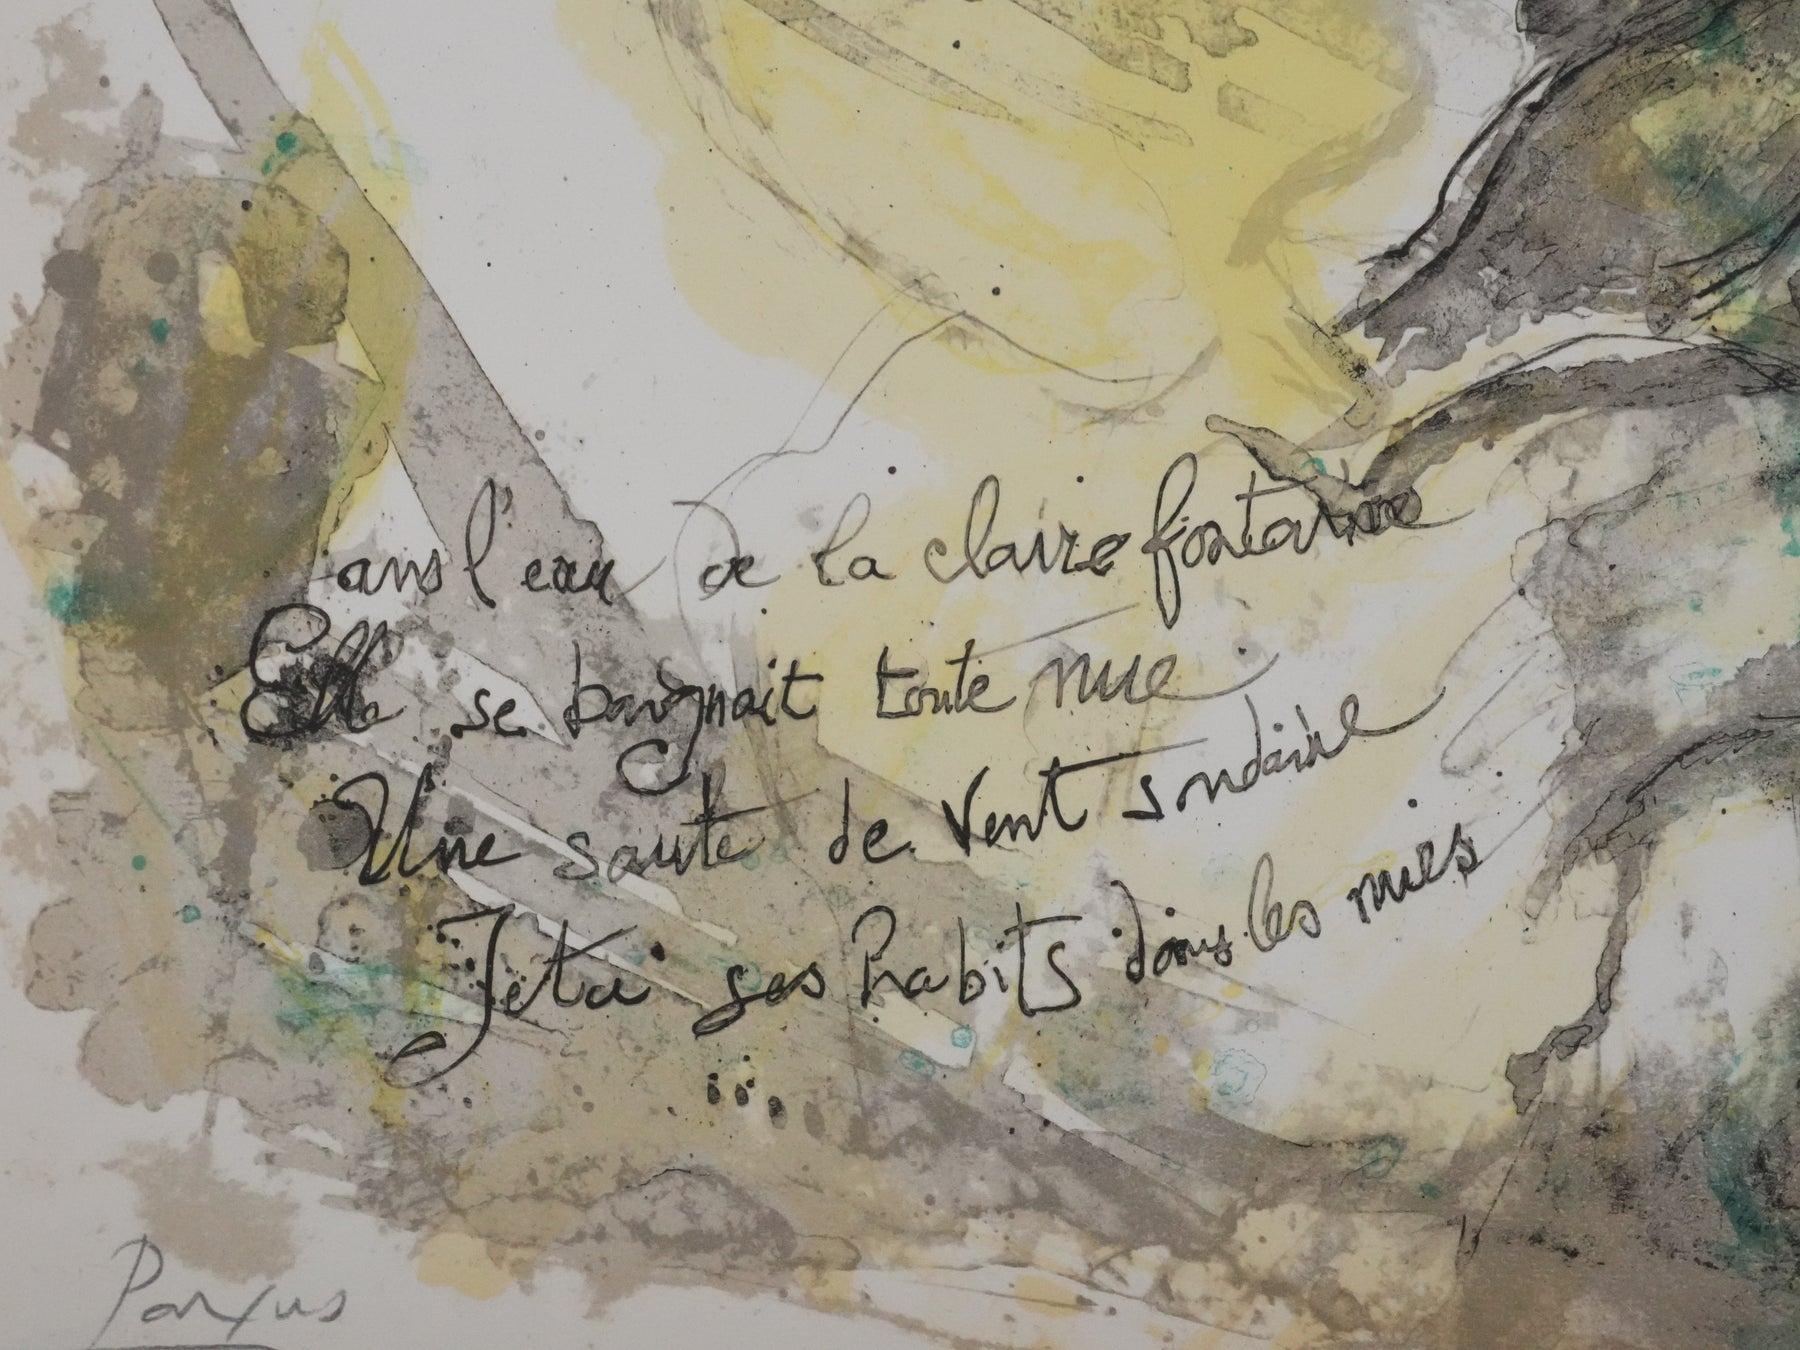 Dans l'eau de la claire fontaine
Elle se baignait toute nue.
Une saute de vent soudaine
Jeta ses habits dans les nues
...
Parxus